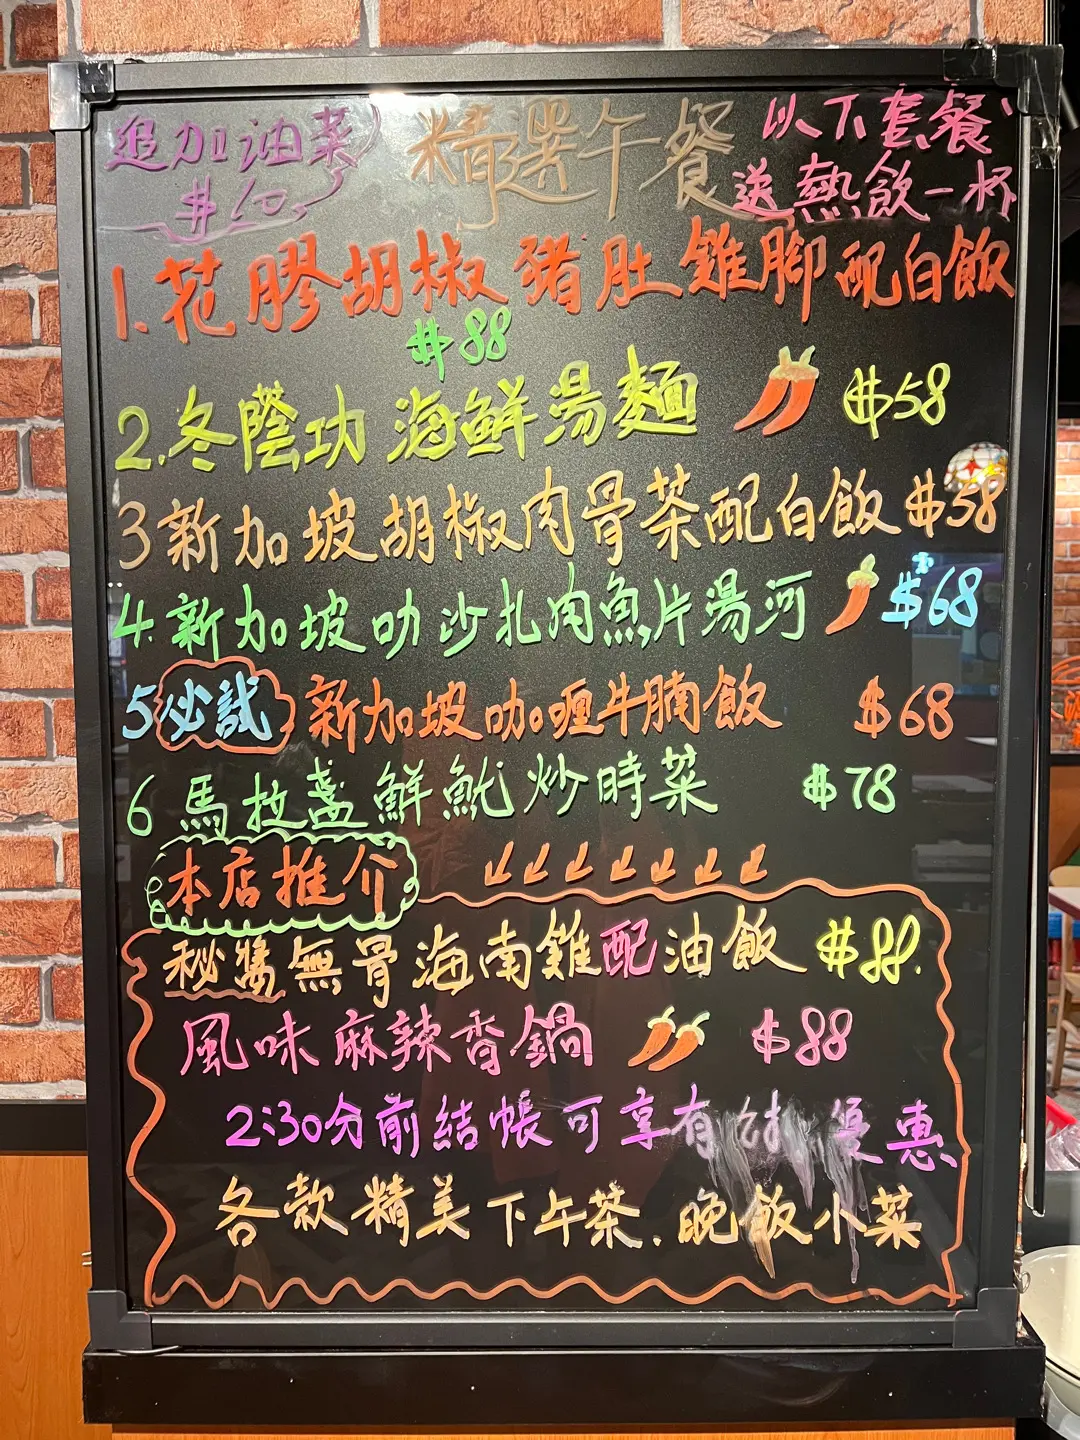 追加油菜
$10
精選午餐
以下套餐
送熱飲一杯
1. 花膠胡椒豬肚雞腳配白飯
$88
2. 冬蔭功海鮮湯麵 $58
3 新加坡胡椒肉骨茶配白飯 $58
4. 新加坡叻沙扎肉魚片湯河 $68
5 必試 新加坡咖喱牛腩飯 $68
6 馬拉盞鮮魷炒時菜 $78
本店推介
秘醬無骨海南雞配油飯 $88.
風味麻辣香鍋 $88
2:30分前結帳可享有 優惠
各款精美下午茶.晚飯小菜